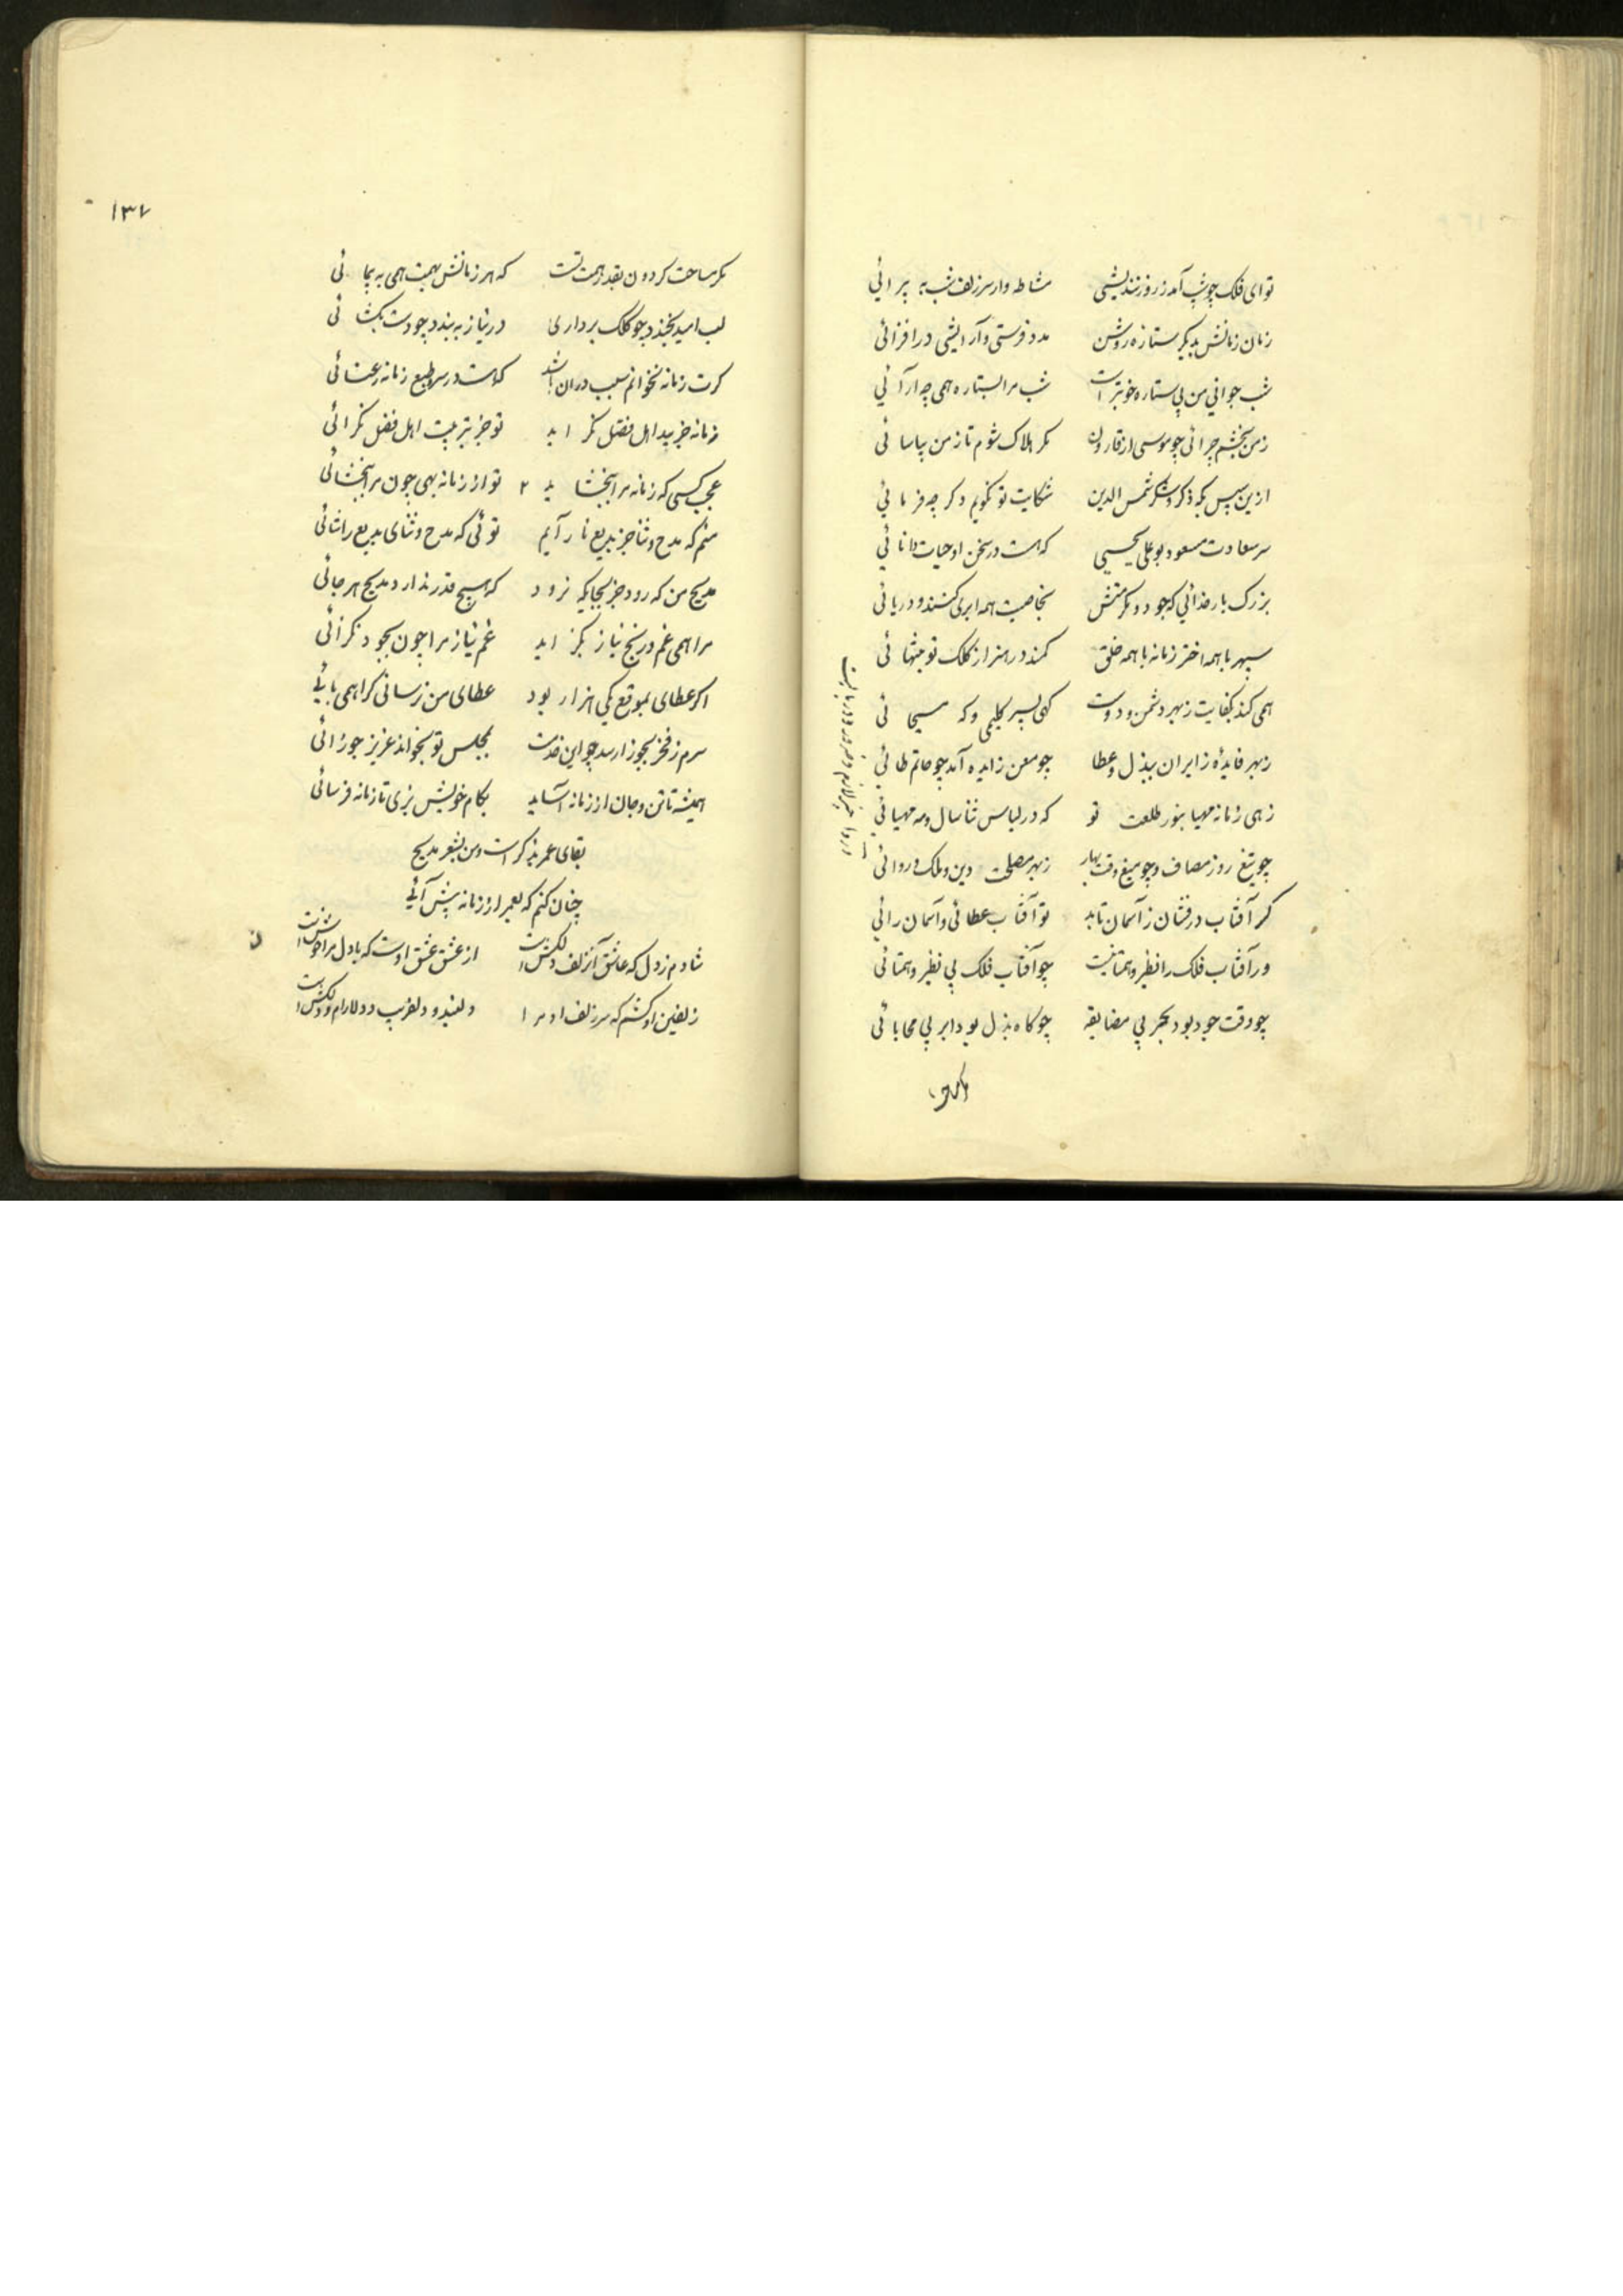 تو ای فلک چو شب آمد ز روز نندیشی مشاطه وار سر زلف شب به پیرائی
زمان زمانش بدیگر ستاره روشن مدد فرستی و آرایشی در افزائی
شب جوانی من بی ستاره خوبتر است شب مرا بستاره همی چه آرائی
ز من بخشم چرائی چو موسی از قارون مگر هلاک شوم تا ز من بیاسائی
ازین سپس که بذکر و شکر شمس الدین شکایت تو نگویم دگر چه فرمائی
سر سعادت مسعود بو علی یحیی که هست در سخن او حیات دانائی
بزرگ بار خدائی که جود و مکرمتش بخاصیت همه ابری کنند و دریائی
سپهر با همه اختر زمانه با همه خلق کمند در هنر از کلک تو بتنهائی
همی کند بکفایت ز بهر دشمن و دوست گهی بسیر کلیمی و گه مسیحائی
ز بهر فایده زایران ببذل و عطا چو معن زایده آمد چو حاتم طائی
زهی زمانه مهیا بنور طلعت تو که در لباس ثنا سال و مه مهیائی
چو تیغ روز مصاف و چو میغ وقت بهار ز بهر مصلحت دین و ملک دروائی
گر آفتاب درفشان ز آسمان تابد تو آفتاب عطائی و آسمان رائی
ور آفتاب فلک را نظیر و همتا نیست چو آفتاب فلک بی نظیر و همتائی
چو وقت جود بود بحر بی مضایقه چو گاه بذل بود ابر بی محابائی
۱۳۷
مگر مساحت گردون بقدر همت تست که هر زمانش بهمت همی به پیمائی
لب امید بخندد چو کلک برداری در نیاز به بندد چو دست بگشائی
گرت زمانه نخوانم سبب دران باشد که هست در سر و طبع زمانه رعنائی
زمانه جز ببد اهل فضل نگراید تو جز بتربیت اهل فضل نگرائی
عجب کسی که زمانه مرا ببخشاید تو از زمانه بهی چون مرا ببخشائی
منم که مدح و ثنا جز بدیع نارایم توئی که مدح و ثنای بدیع را شائی
مدیح من که رود جز بجایگه نرود که هیچ قدر ندارد مدیح هر جائی
مرا همی غم و رنج نیاز بگزاید غم نیاز مرا چون بجود نگزائی
اگر عطای بموقع یکی هزار بود عطای من نرسانی کرا همی بائی
سرم ز فخر بجوزا رسد چو این خدمت بمجلس تو بخواند عزیز جوزائی
همیشه تا تن و جان از زمانه آساید بکام خویش بزی تا زمانه فرسائی
بقای عمر بذکر است و من بشعر مدیح
چنان کنم که بعمر از زمانه پیش آئی
شادم ز دل که عاشق آن زلف دلکش است از عشق عشق اوست که با دل مرا خوش است
زلفین او کشم که سر زلف او مرا دلبند و دلفریب و دلارام و دلکش است